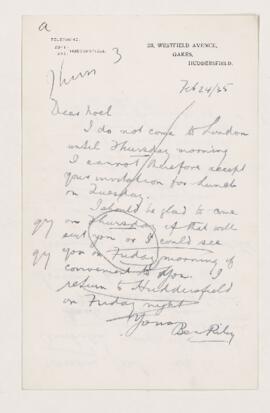 a
TELEPHONE:
HUDDERSFIELD.
28, WESTFIELD AVENUE,
OAKES,
HUDDERSFIELD.
Thurs 3
Feb 24/35
Dear Noel
I do not come to London
until Thursday morning
I cannot therefore accept
your invitation for lunch
on Tuesday.
I should be glad to come
on Thursday if that will
suit you or I could see
you on Friday morning if
convenient to you. I
return to Huddersfield
on Friday night
Yours
Ben Riley